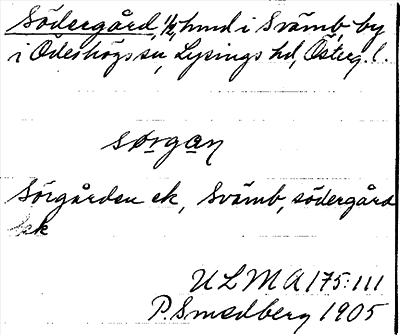 Södergård, 1/2 hmd i Svämb by
i Ödeshögs sn, Lysings hd, Österg. l.
sörgan
Sörgården ek, Svämb, södergård
ek
ULMA 175:111
P. Smedberg 1905